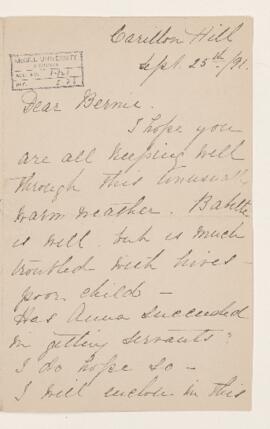 Carillon Hill
Sept. 25th/91.
McGILL UNIVERSITY
ACC. NO.
REF.
Dear Bernie.
I hope you
are all keeping well
through this unusually
warm weather. Babette
is well. but is much
troubled with hives -
poor child -
Has Anna succeeded
in getting servants?
I do hope so -
I will enclose in this